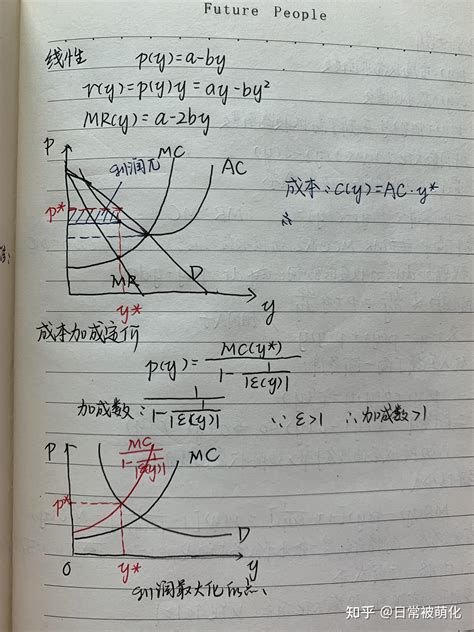 Future People
线性 p(y)=a-by
r(y)=p(y)y=ay-by²
MR(y)=a-2by
P
MC
利润π
AC
成本:C(y)=AC·y*
∴
P*
MR
D
y*
y
成本加成定价
p(y)=MC(y*)/(1-1/|ε(y)|)
加成数:1/(1-1/|ε(y)|) ∵ε>1 ∴加成数>1
P
MC/(1-1/|ε(y)|)
MC
P*
D
0
y*
y
利润最大化的点
知乎 @日常被萌化